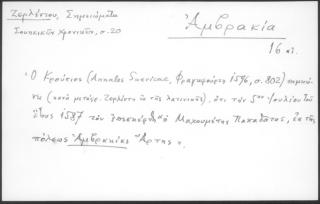 Ζερλέντου, Σημειώματα
Σουηκικῶν Χρονικῶν, σ. 20
Ἀμβρακία
16 αἰ.
Ὁ Κρούσιος (Annales Suevicae, Φραγκφούρτη 1596, σ. 802) σημειώ-
νει (κατὰ μετάφρ. Ζερλέντη ἐκ τῆς λατινικῆς), ὅτι τὴν 5ην Ἰουλίου τοῦ
ἔτους 1587 τὸν ἐπεσκέφθη ὁ Παπαδᾶτος, ἐκ τῆς
πόλεως Ἀμβρακίας Ἄρτης